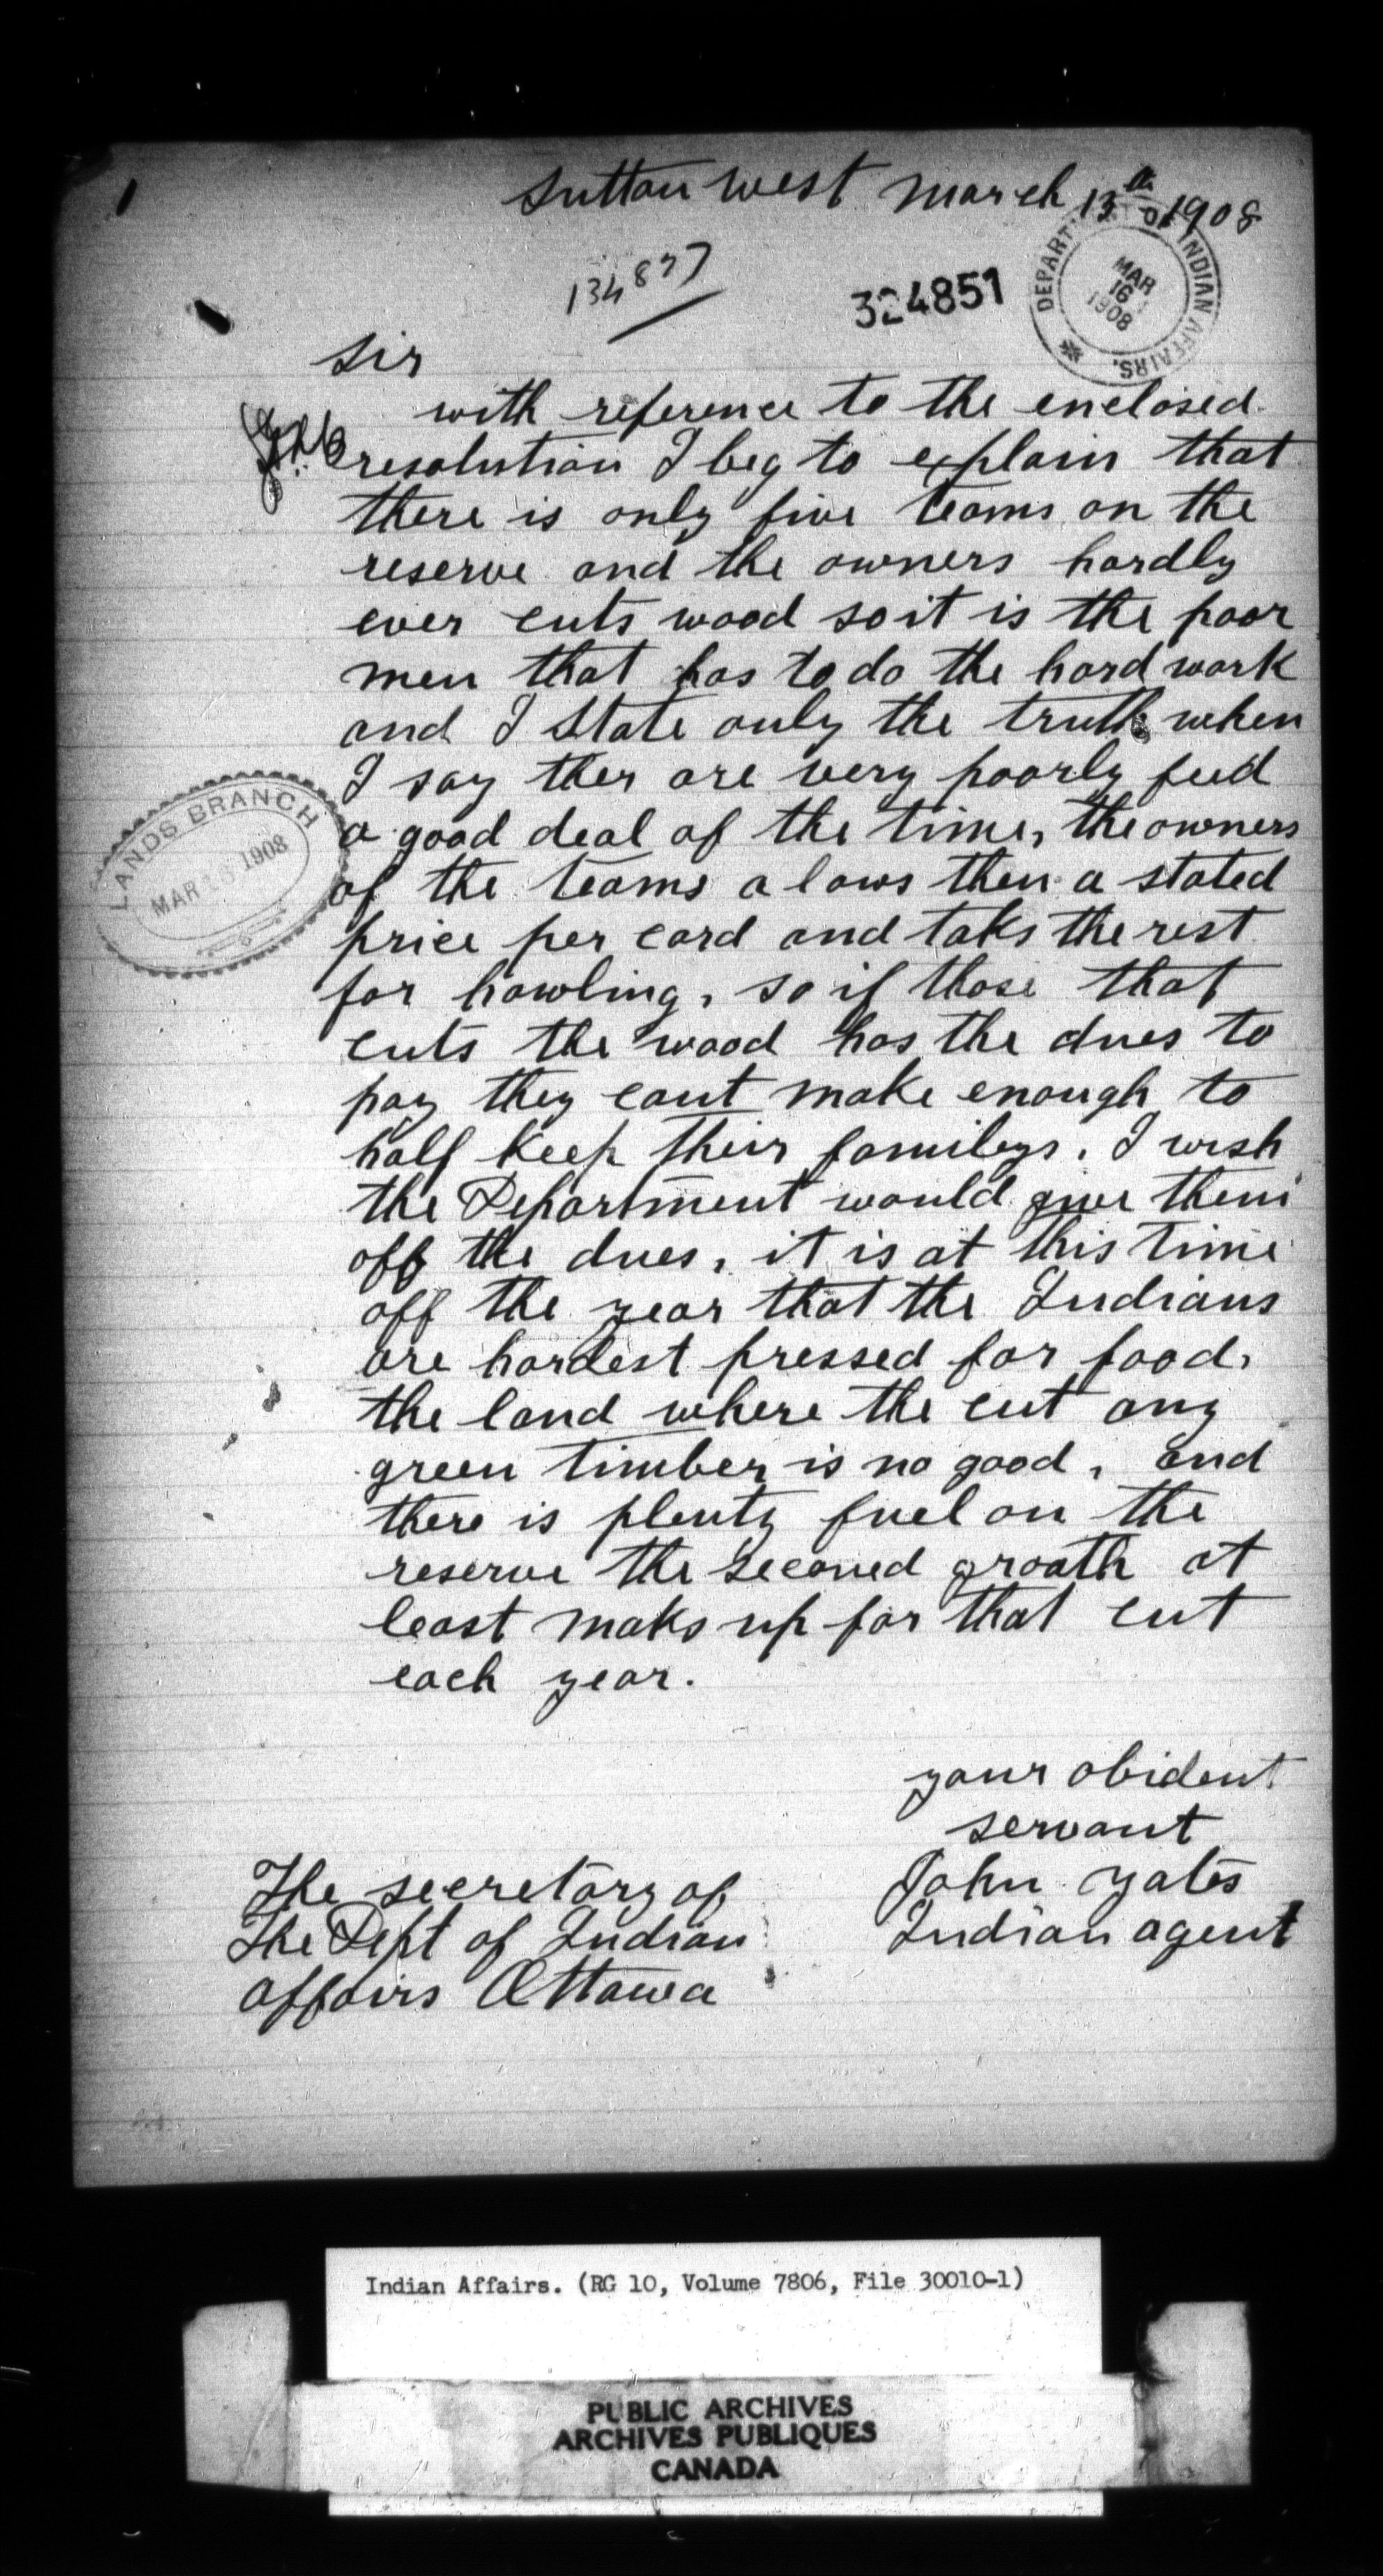 Sutton West March 13th 1908
134877
324851
DEPARTMENT OF INDIAN AFFAIRS.
MAR
16
1908
Sir
with reference to the enclosed
resolution I beg to explain that
there is only five teams on the
reserve and the owners hardly
ever cuts wood so it is the poor
men that has to do the hard work
and I State only the truth when
I say ther are very poorly feed
a good deal of the time, the owners
of the teams a lows then a stated
price per cord and taks the rest
for howling, so if those that
cuts the wood has the dues to
pay they cant make enough to
half keep their familys. I wish
the Department would give them
off the dues, it is at this time
off the year that the Indians
are hardest pressed for food,
the land where the cut any
green timber is no good, and
there is plenty fuel on the
reserve the seconed groath at
least maks up for that cut
each year.
LANDS BRANCH
MAR 16 1908
your obident
servant
John Yates
Indian agent
The secretary of
The Dept of Indian
affairs Ottawa
Indian Affairs. (RG 10, Volume 7806, File 30010-1)
PUBLIC ARCHIVES
ARCHIVES PUBLIQUES
CANADA